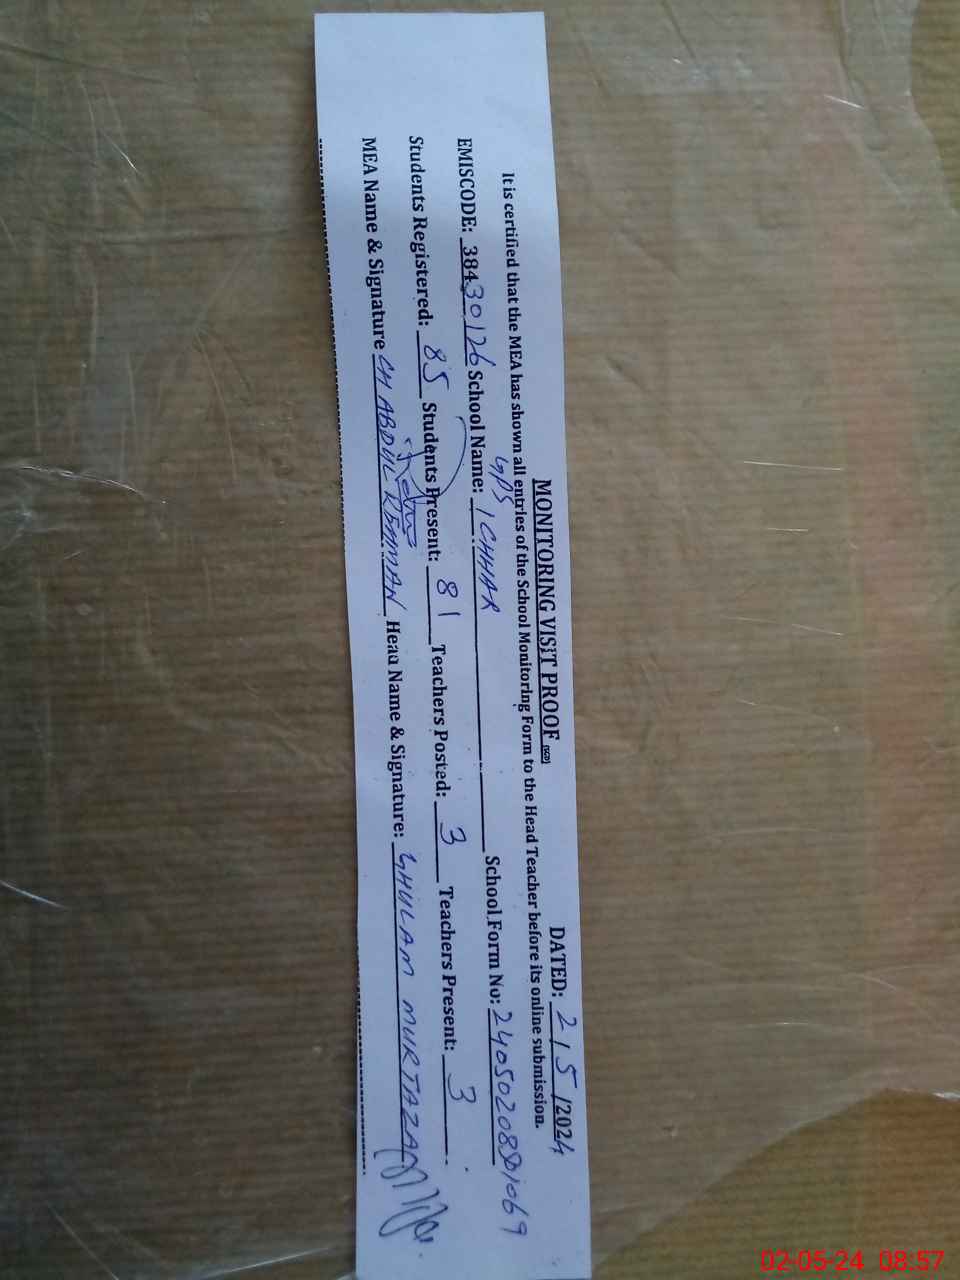 MONITORING VISIT PROOF DATED: 2/5/2024
It is certified that the MEA has shown all entries of the School Monitoring Form to the Head Teacher before its online submission.
EMISCODE: 38430126 School Name: GPS ICHHAR School Form No: 
Students Registered: 85 Students Present: 81 Teachers Posted: 3 Teachers Present: 3
MEA Name & Signature CH ABDUL REHMAN Head Name & Signature: GHULAM MURTAZA
02-05-24 08:57